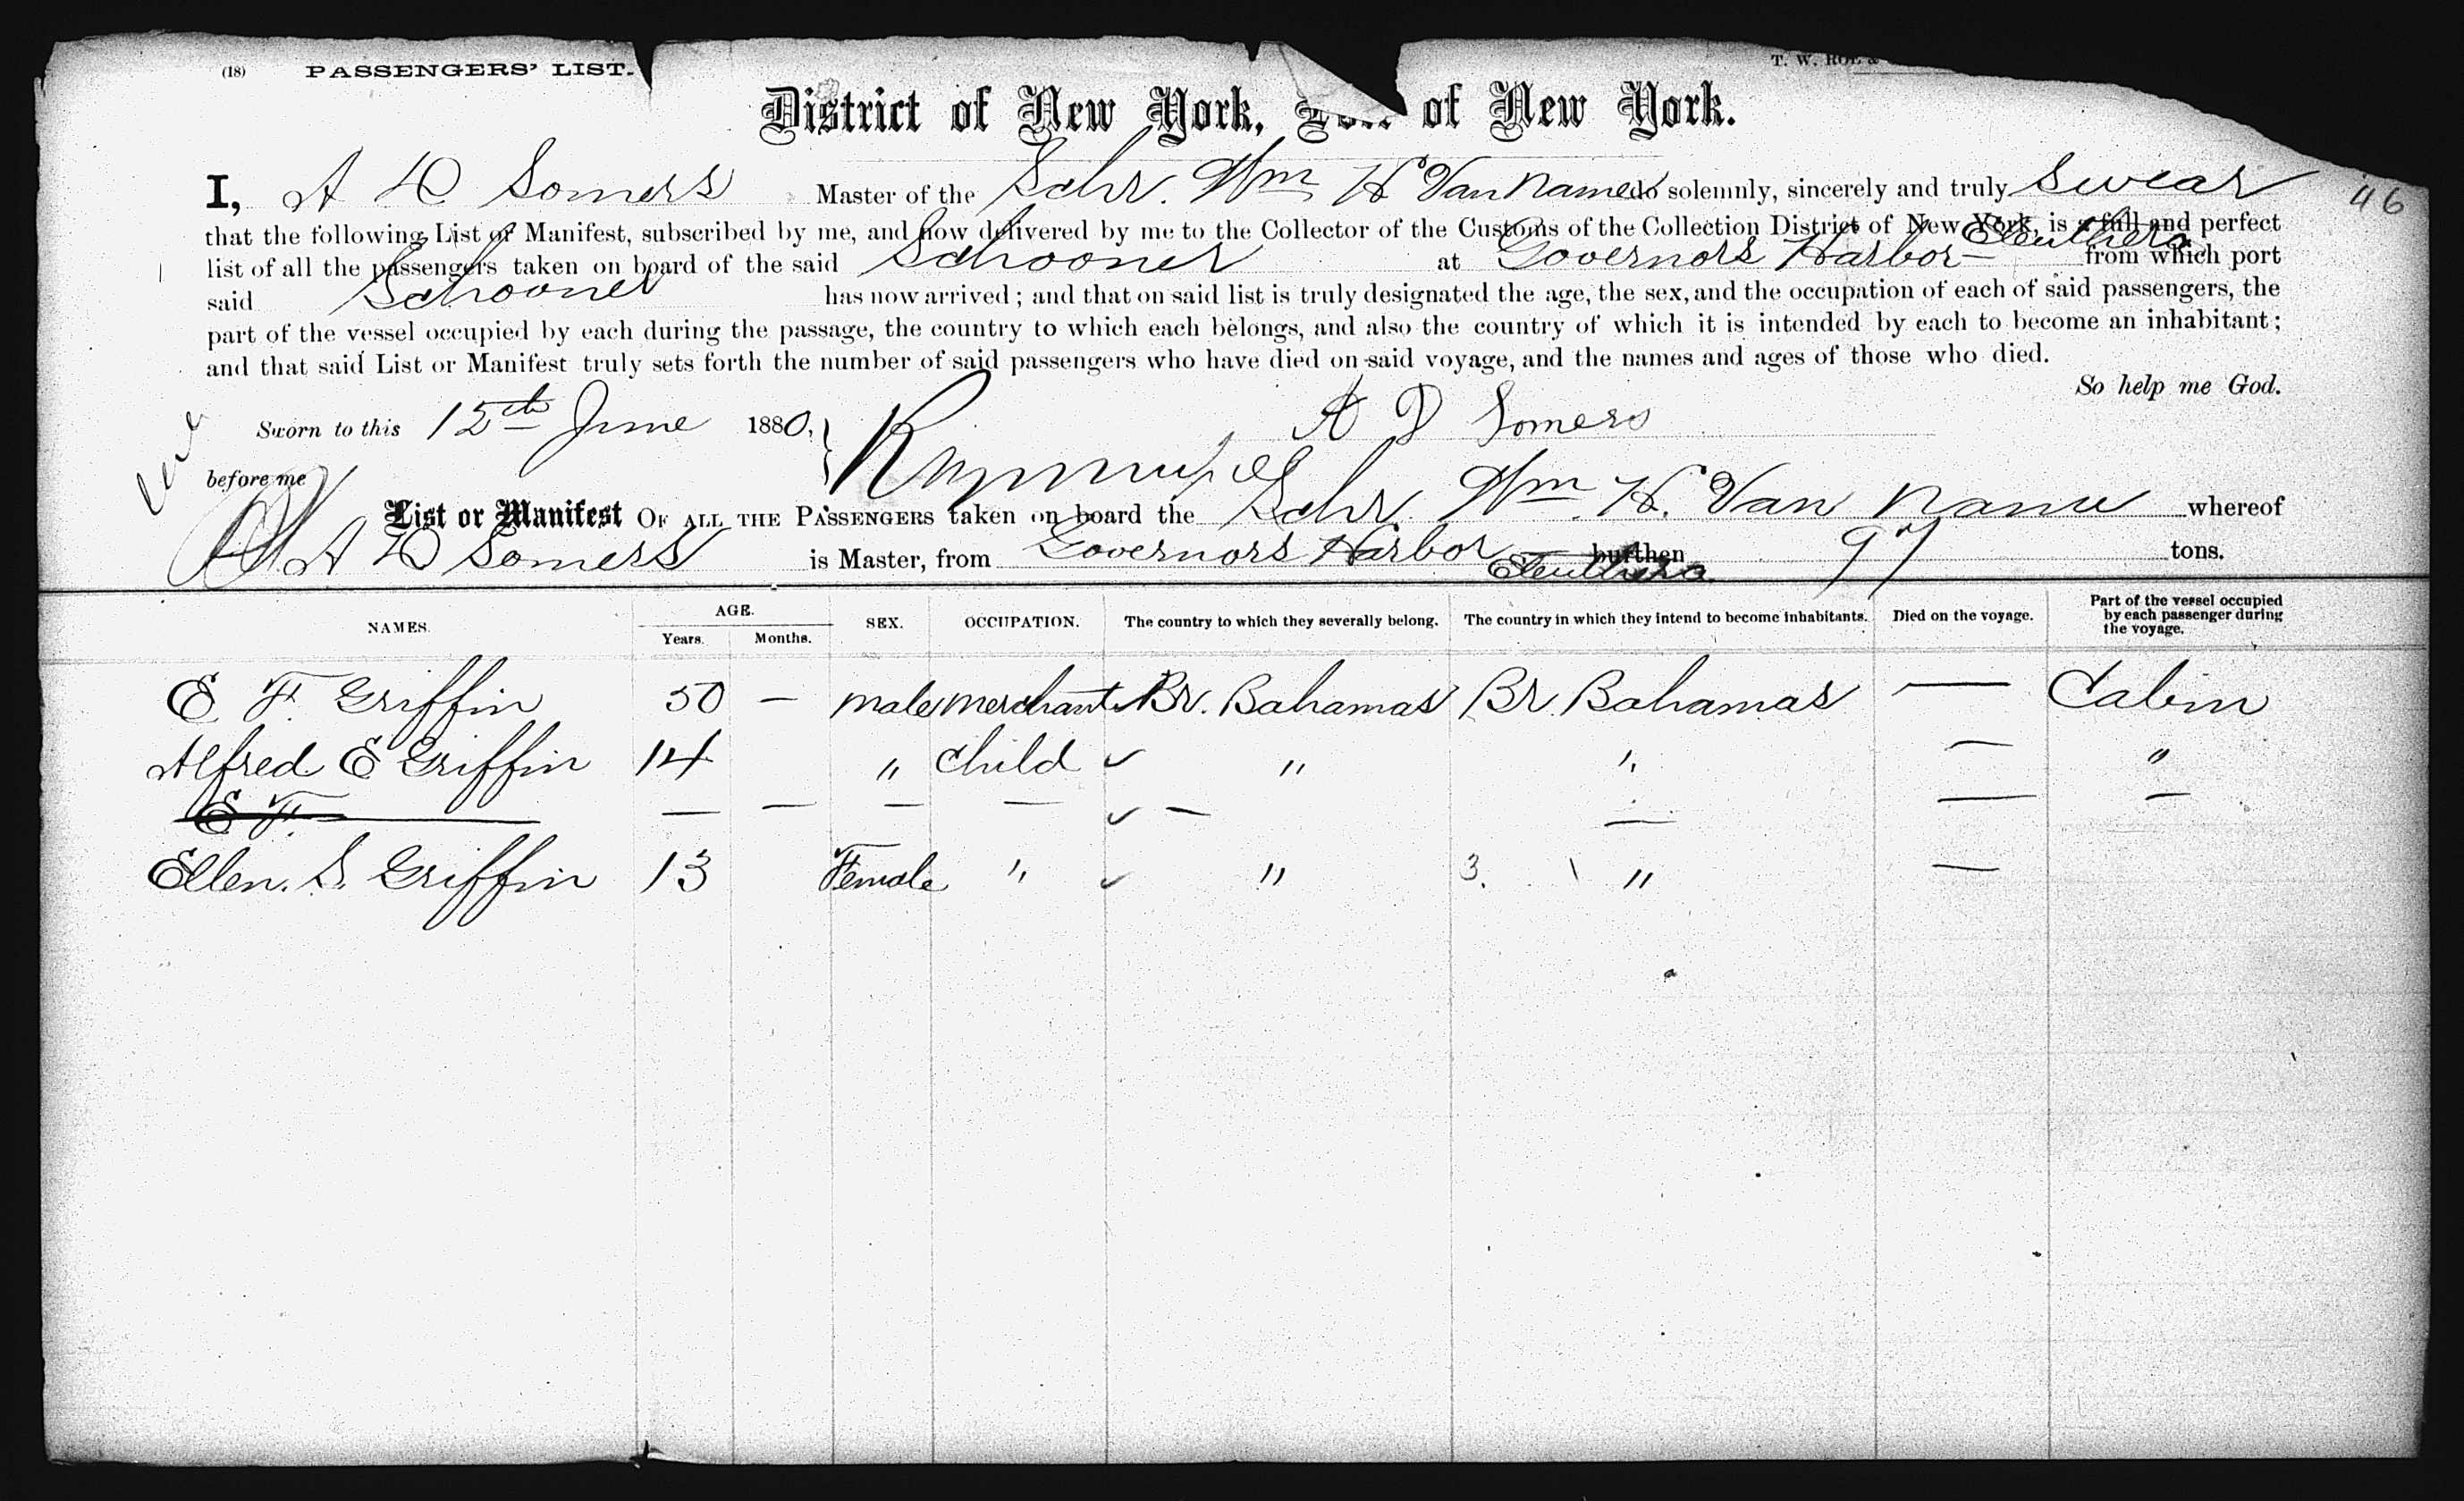 (18) PASSENGERS' LIST. T. W.
District of New York, Port of New York.
46
I, A D Somers Master of the Schr. Wm H Van Name do solemnly, sincerely and truly Swear
that the following List or Manifest, subscribed by me, and now delivered by me to the Collector of the Customs of the Collection District of New York, is a full and perfect
list of all the passengers taken on board of the said Schooner at Governors Harbor Eleuthera from which port
said Schooner has now arrived; and that on said list is truly designated the age, the sex, and the occupation of each of said passengers, the
part of the vessel occupied by each during the passage, the country to which each belongs, and also the country of which it is intended by each to become an inhabitant;
and that said List or Manifest truly sets forth the number of said passengers who have died on said voyage, and the names and ages of those who died.
So help me God.
Sworn to this 12th June 1880, A D Somers
before me
List or Manifest OF ALL THE PASSENGERS taken on board the Schr Wm. H. Van Name whereof
A D Somers is Master, from Governors Harbor Eleuthera burthen 97 tons.
NAMES. AGE. Years. Months. SEX. OCCUPATION. The country to which they severally belong. The country in which they intend to become inhabitants. Died on the voyage. Part of the vessel occupied by each passenger during the voyage.
E. F. Griffin 50 — male merchant Br. Bahamas Br. Bahamas — Cabin
Alfred E Griffin 14 " child ✓ " " — "
E F. — — — — ✓ — — — —
Ellen. S. Griffin 13 Female " ✓ " 3. " —